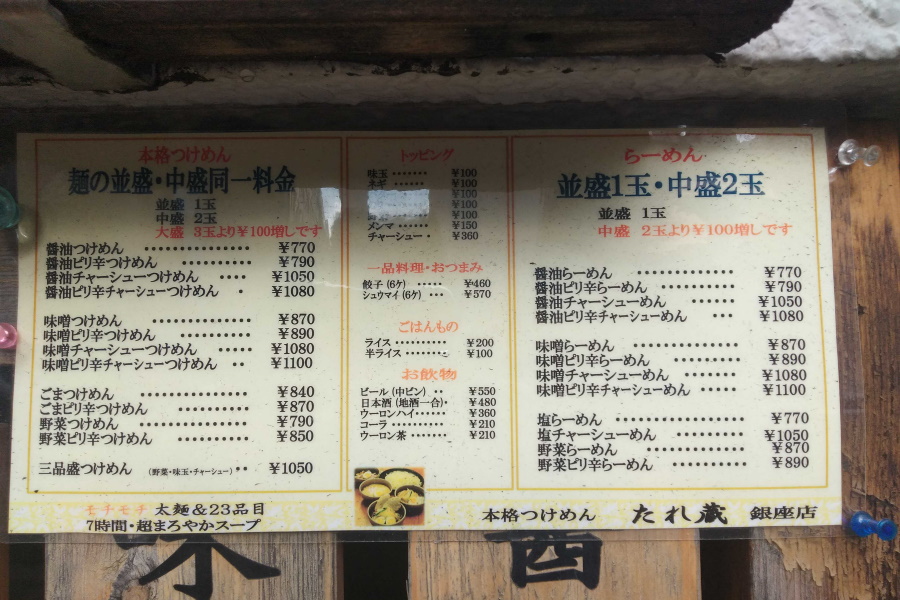 本格つけめん
麺の並盛・中盛同一料金
並盛 1玉
中盛 2玉
大盛 3玉より¥100増しです
醤油つけめん ¥770
醤油ピリ辛つけめん ¥790
醤油チャーシューつけめん ¥1050
醤油ピリ辛チャーシューつけめん ¥1080
味噌つけめん ¥870
味噌ピリ辛つけめん ¥890
味噌チャーシューつけめん ¥1080
味噌ピリ辛チャーシューつけめん ¥1100
ごまつけめん ¥840
ごまピリ辛つけめん ¥870
野菜つけめん ¥790
野菜ピリ辛つけめん ¥850
三品盛つけめん (野菜・味玉・チャーシュー) ¥1050
トッピング
味玉 ¥100
ネギ ¥100
¥100
¥100
¥100
メンマ ¥150
チャーシュー ¥360
一品料理・おつまみ
餃子(6ケ) ¥460
シュウマイ(6ケ) ¥570
ごはんもの
ライス ¥200
半ライス ¥100
お飲物
ビール(中ビン) ¥550
日本酒(地酒一合) ¥480
ウーロンハイ ¥360
コーラ ¥210
ウーロン茶 ¥210
らーめん
並盛1玉・中盛2玉
並盛 1玉
中盛 2玉より¥100増しです
醤油らーめん ¥770
醤油ピリ辛らーめん ¥790
醤油チャーシューめん ¥1050
醤油ピリ辛チャーシューめん ¥1080
味噌らーめん ¥870
味噌ピリ辛らーめん ¥890
味噌チャーシューめん ¥1080
味噌ピリ辛チャーシューめん ¥1100
塩らーめん ¥770
塩チャーシューめん ¥1050
野菜らーめん ¥870
野菜ピリ辛らーめん ¥890
モチモチ 太麺&23品目
7時間・超まろやかスープ
本格つけめん たれ蔵 銀座店